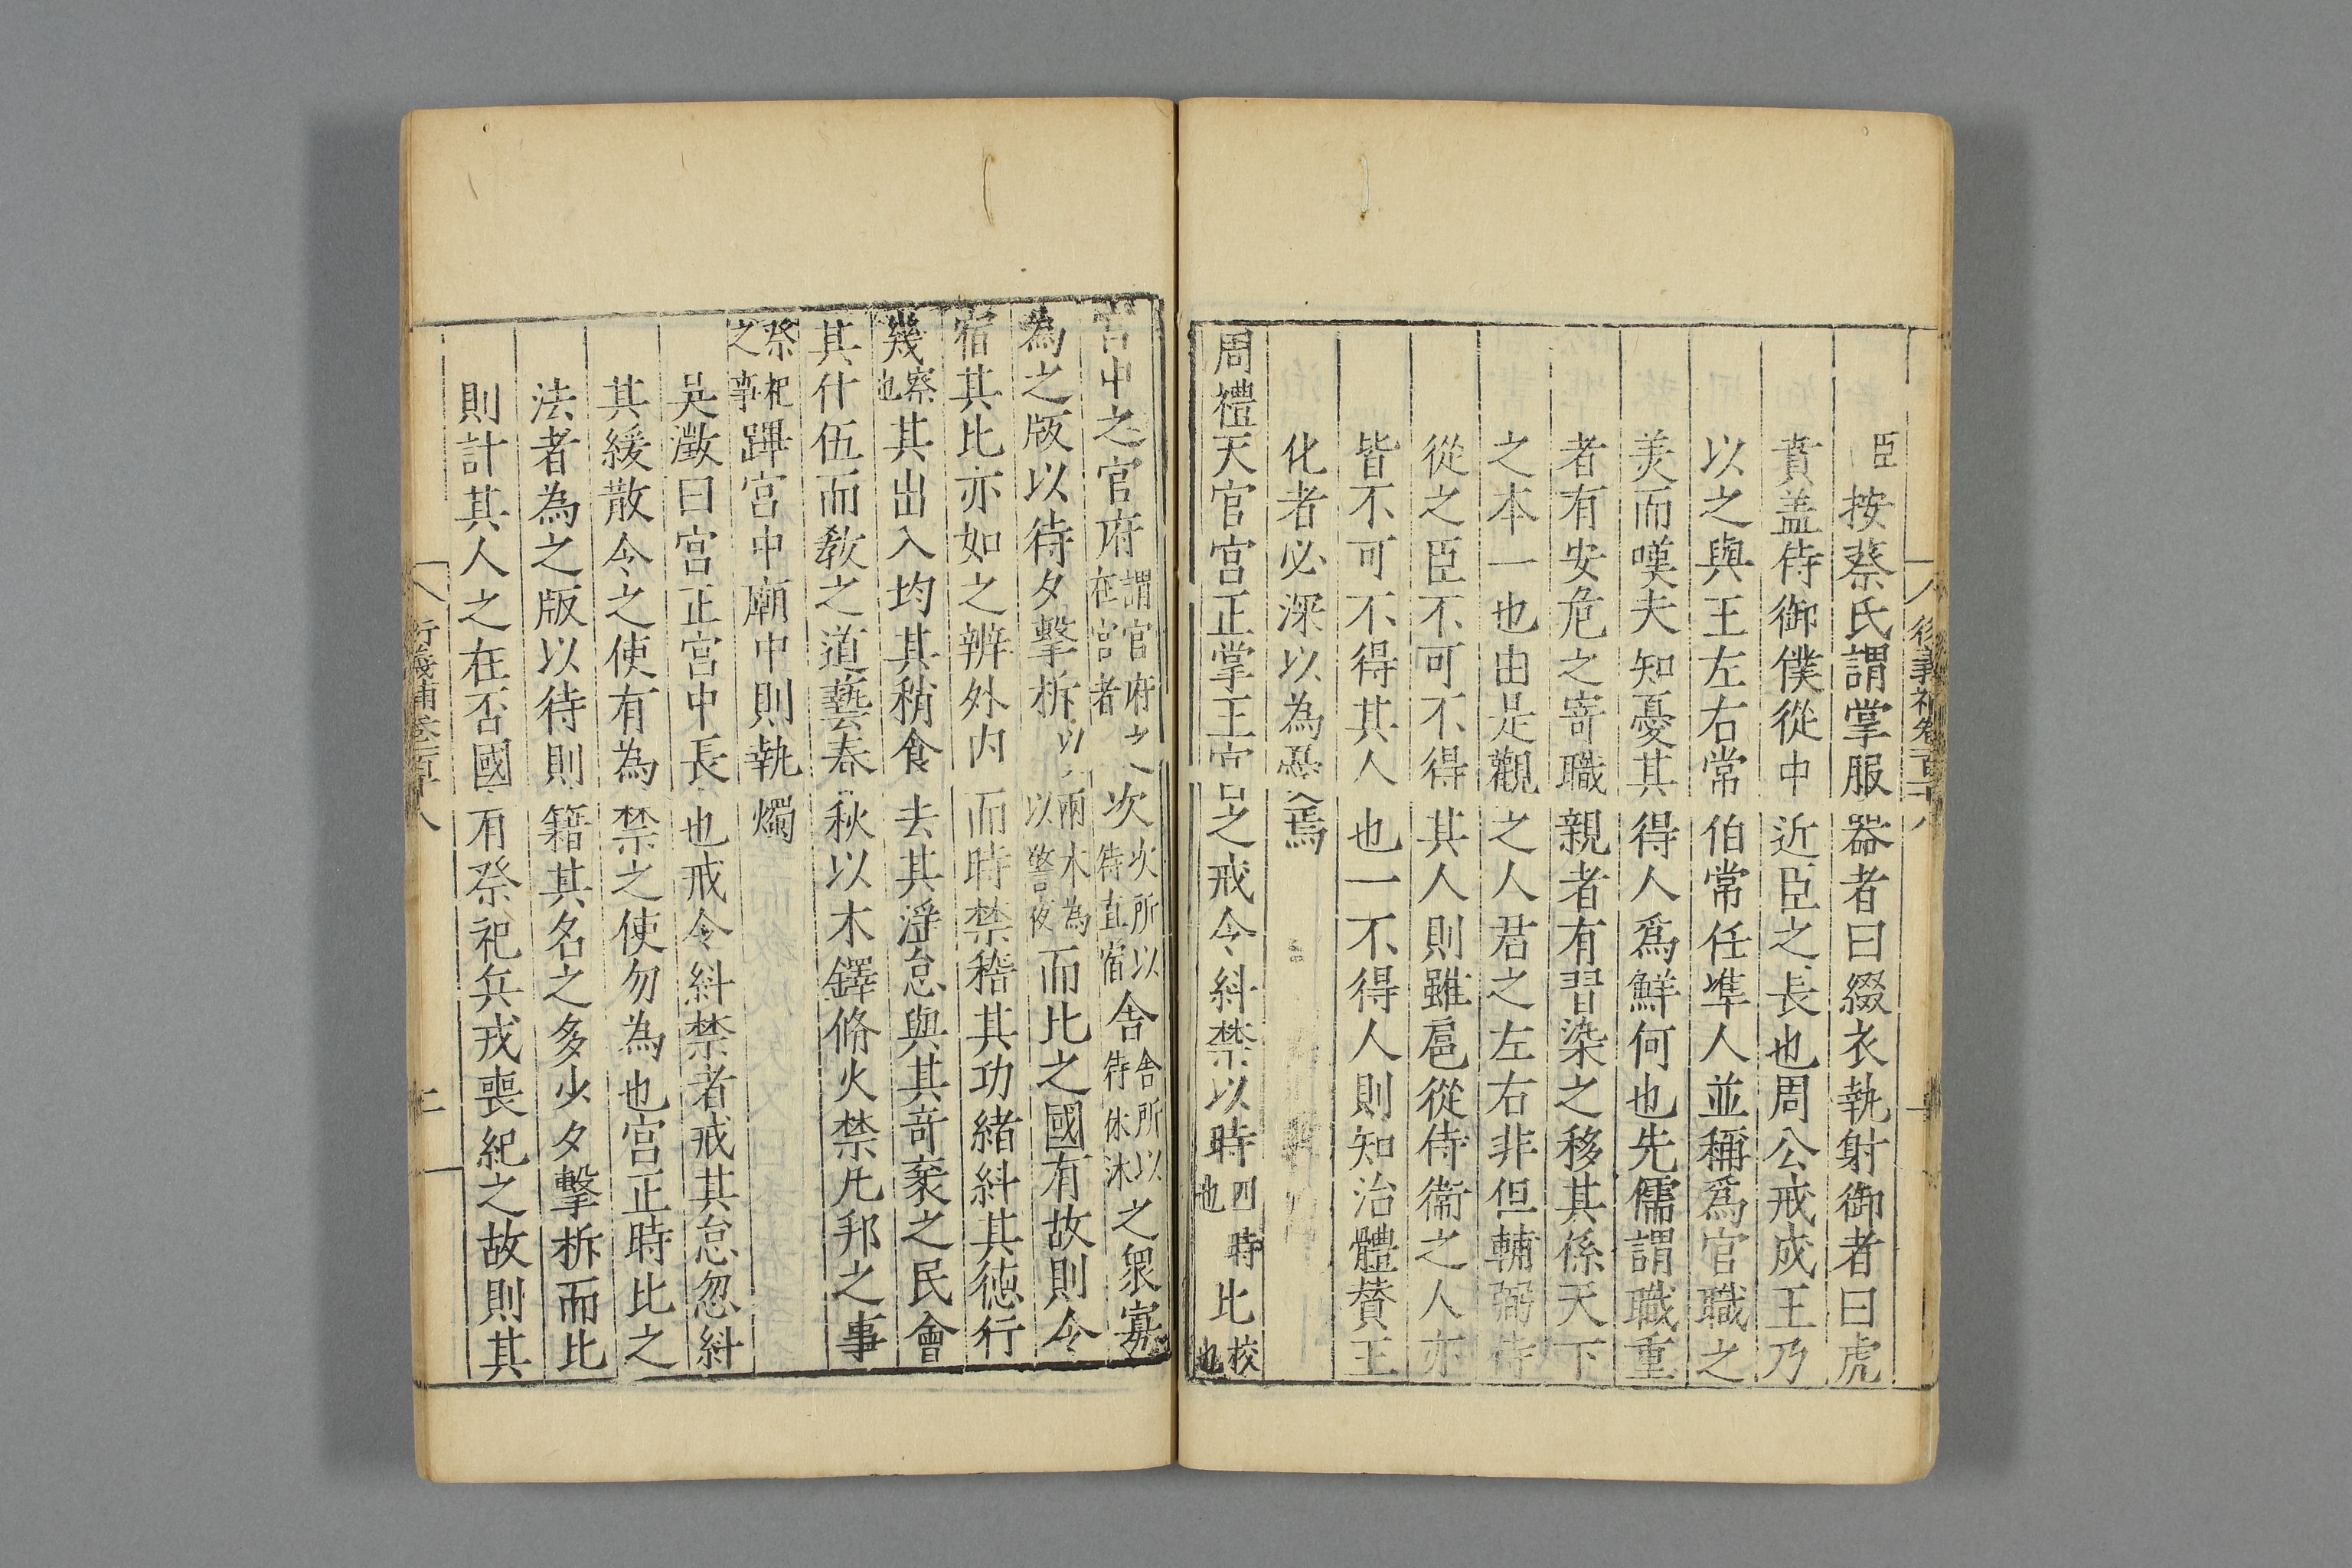 臣按蔡氏謂掌服器者曰綴衣執射御者曰虎
賁盖侍御僕從中近臣之長也周公戒成王乃
以之與王左右常伯常任凖人並稱爲官職之
羙而嘆夫知憂其得人爲鮮何也先儒謂職重
者有安危之寄職親者有習染之移其係天下
之本一也由是觀之人君之左右非但輔弼侍
從之臣不可不得其人則雖扈從侍衞之人亦
皆不可不得其人也一不得人則知治體賛王
化者必深以為憂焉
周禮天官宮正掌王宮之戒令糾禁以時四時也比校也
宮中之官府謂官府之在宮者次次所以待直宿舍舍所以待休沐之衆寡
為之版以待夕擊柝以兩木為以警夜而比之國有故則令
宿其比亦如之辨外内而時禁稽其功緒糾其徳行
幾察也其出入均其稍食去其滛怠與其竒衺之民會
其什伍而敎之道藝春秋以木鐸脩火禁凡邦之事
祭祀之事蹕宮中廟中則執燭
吴澂曰宮正宮中長也戒令糾禁者戒其怠忽糾
其緩散令之使有為禁之使勿為也宮正時比之
法者為之版以待則籍其名之多少夕擊柝而比
則計其人之在否國有祭祀兵戎喪紀之故則其
衍義補卷一百十八